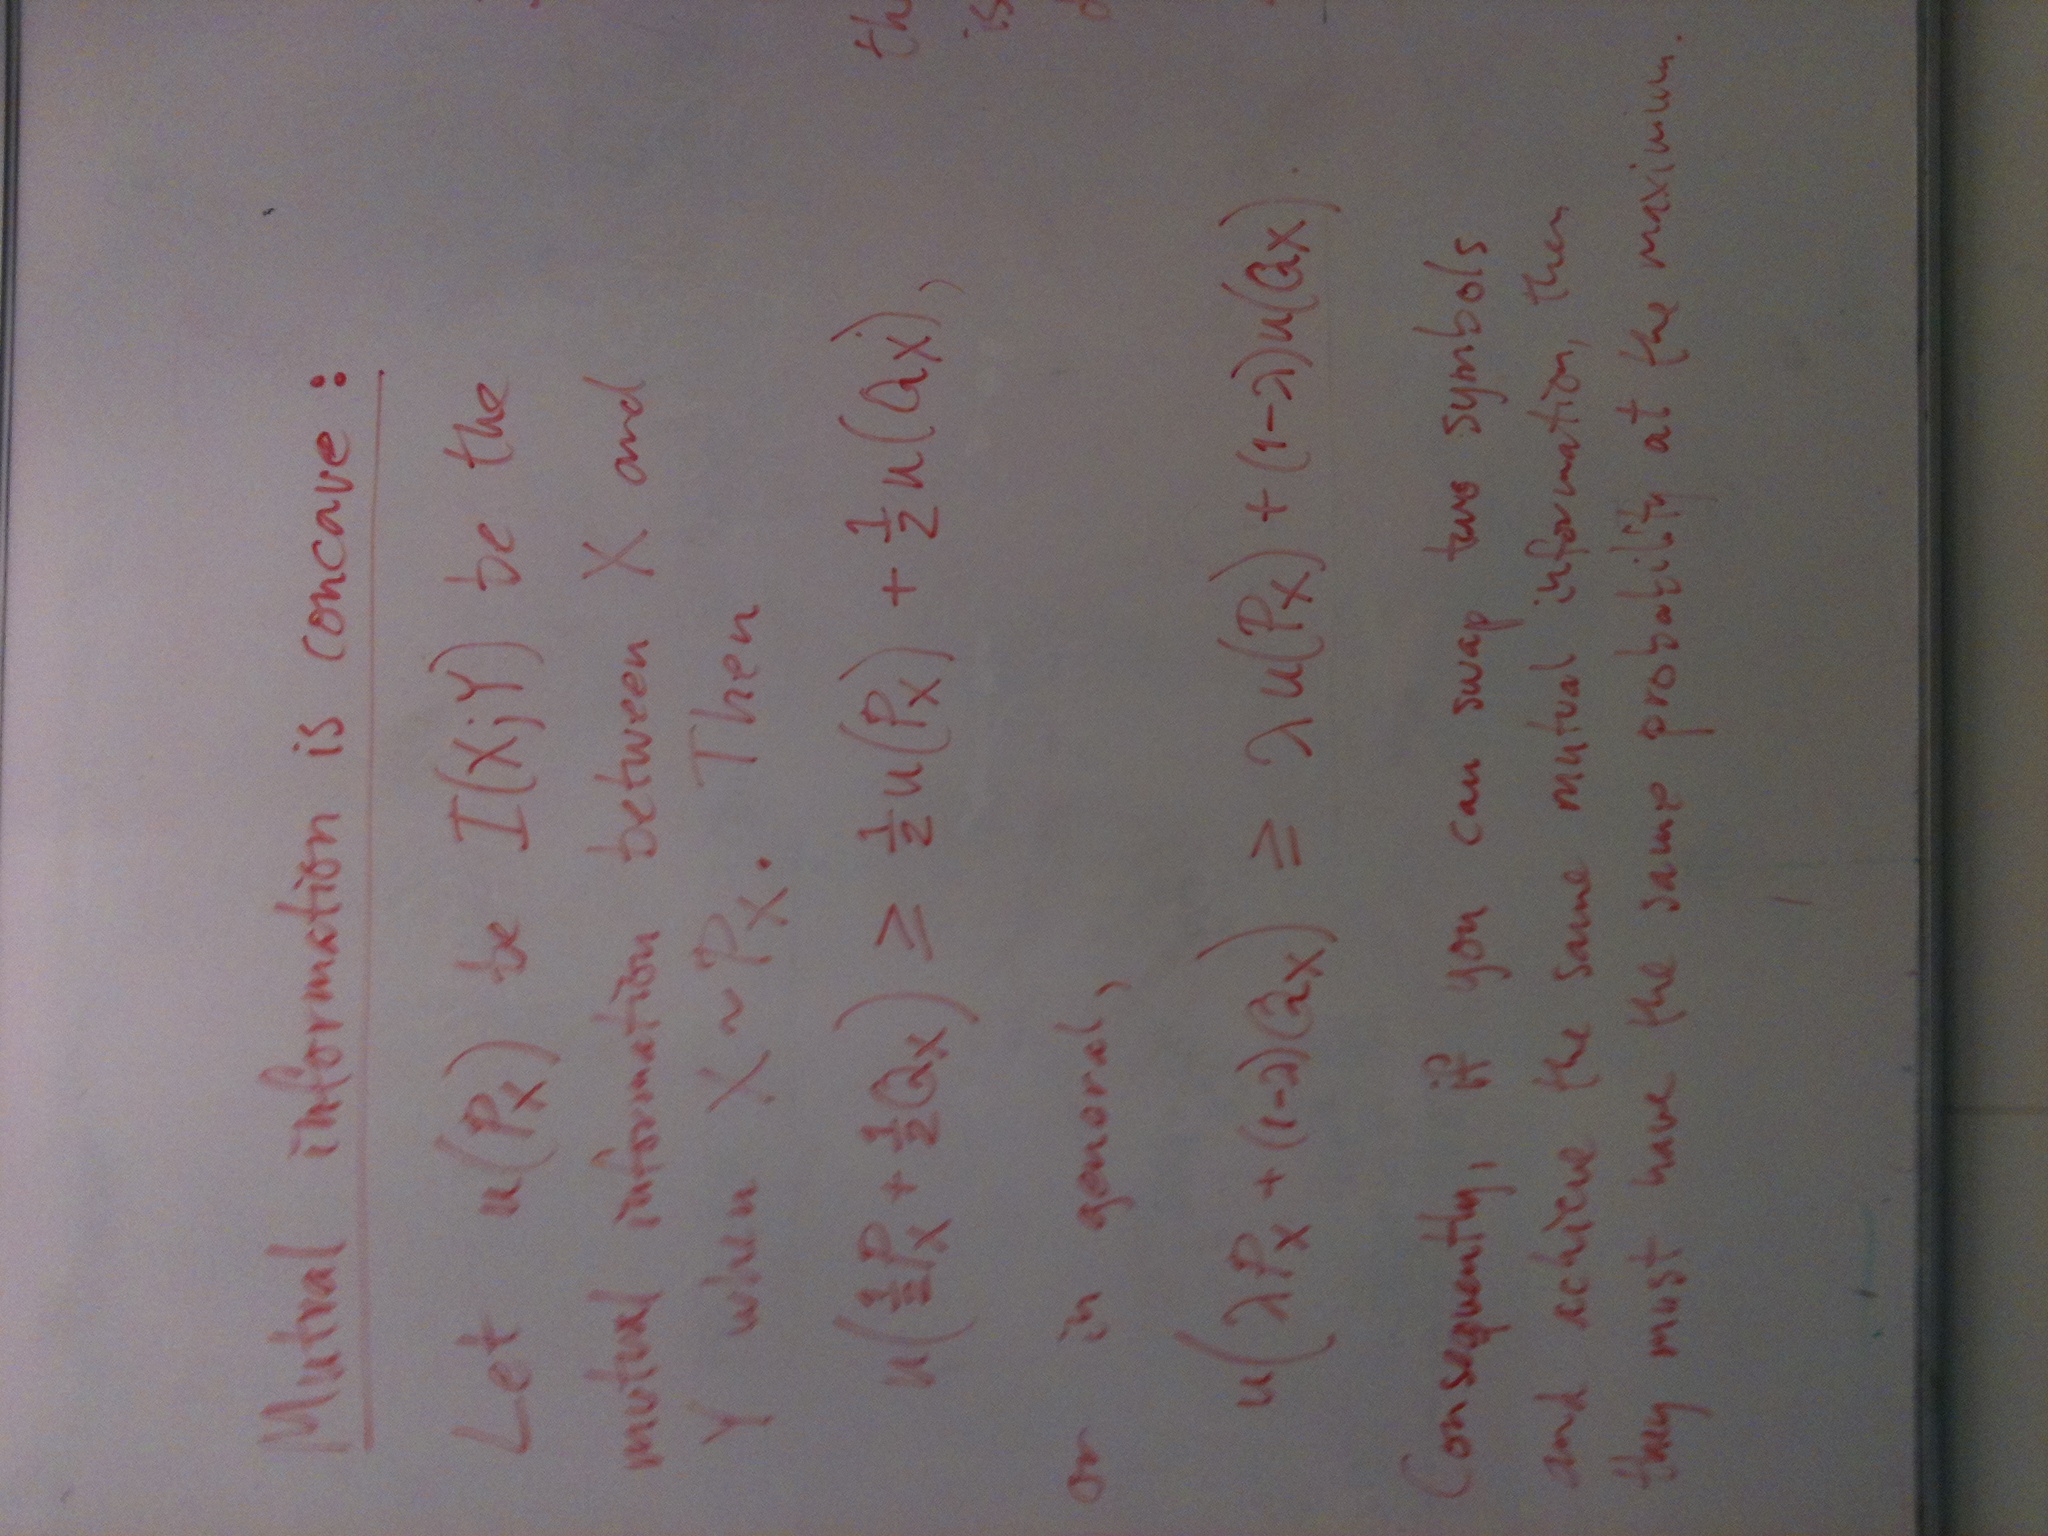 Mutual information is concave:
Let u(P_X) be I(X;Y) be the
mutual information between X and
Y when X ~ P_X. Then
u(½P_X + ½Q_X) ≥ ½u(P_X) + ½u(Q_X),
or in general,
u(λP_X + (1-λ)Q_X) ≥ λu(P_X) + (1-λ)u(Q_X).
Consequently, if you can swap two symbols
and achieve the same mutual information, then
they must have the same probability at the maximum.
th
is